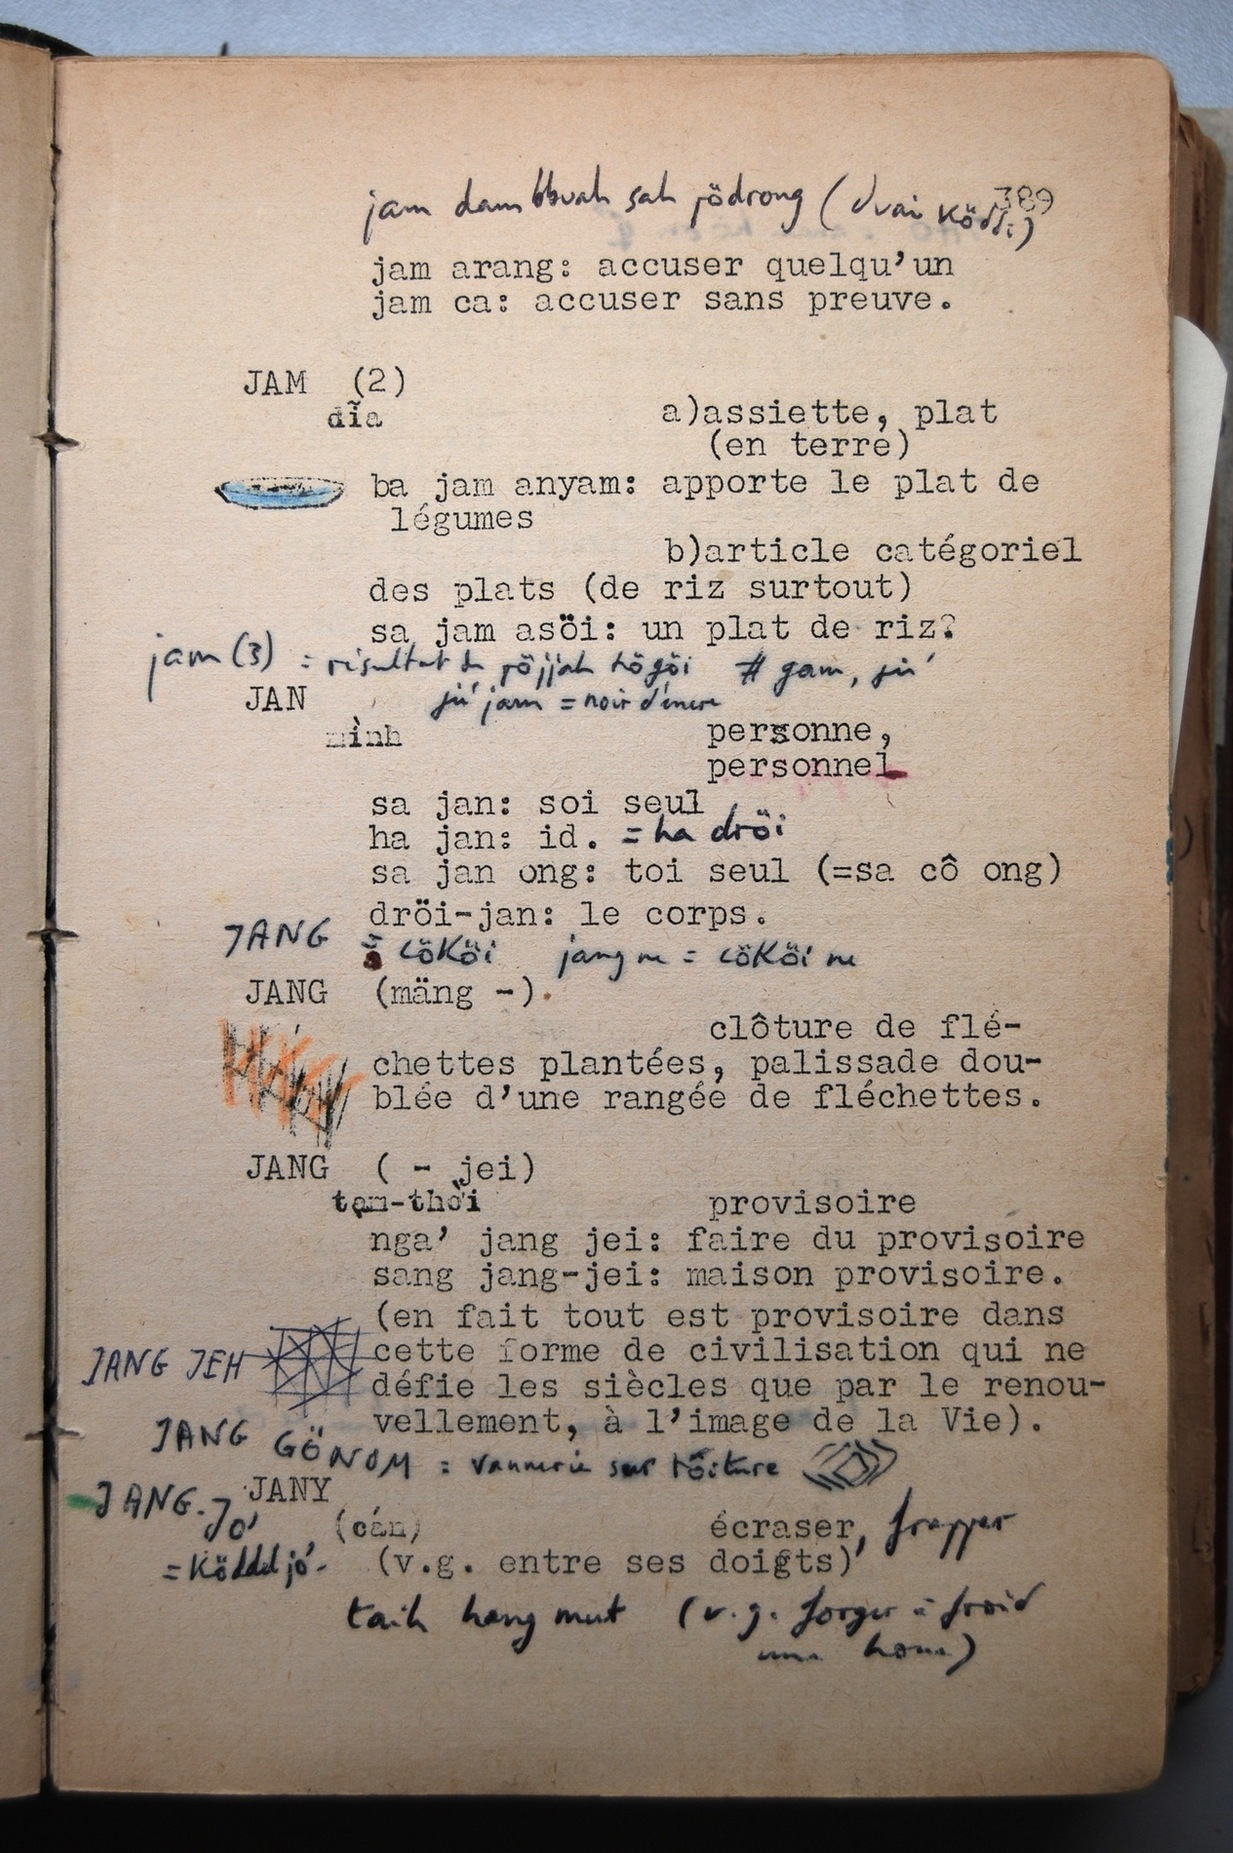 389
jam dam bbuah sah pödrong
jam arang: accuser quelqu'un
jam ca: accuser sans preuve.
JAM (2)
dĩa a)assiette, plat
(en terre)
ba jam anyam: apporte le plat de
légumes
b)article catégoriel
des plats (de riz surtout)
sa jam asöi: un plat de riz?
jam (3) = résultat de # gam, jú
JAN jú jam = noir d'encre
mình personne,
personnel
sa jan: soi seul
ha jan: id. = ha dröi
sa jan ong: toi seul (=sa cô ong)
dröi-jan: le corps.
JANG = cököi jang m = cököi m
JANG (mäng -).
clôture de flé-
chettes plantées, palissade dou-
blée d'une rangée de fléchettes.
JANG ( - jei)
tạm-thời provisoire
nga' jang jei: faire du provisoire
sang jang-jei: maison provisoire.
(en fait tout est provisoire dans
JANG JEH cette forme de civilisation qui ne
défie les siècles que par le renou-
vellement, à l'image de la Vie).
JANG GÖNOM = vannerie sur toiture
JANY
JANG-JO' (cán) écraser, frapper
= köddel jó (v.g. entre ses doigts)
taih hang mut (v.g. forger à froid
une houe)